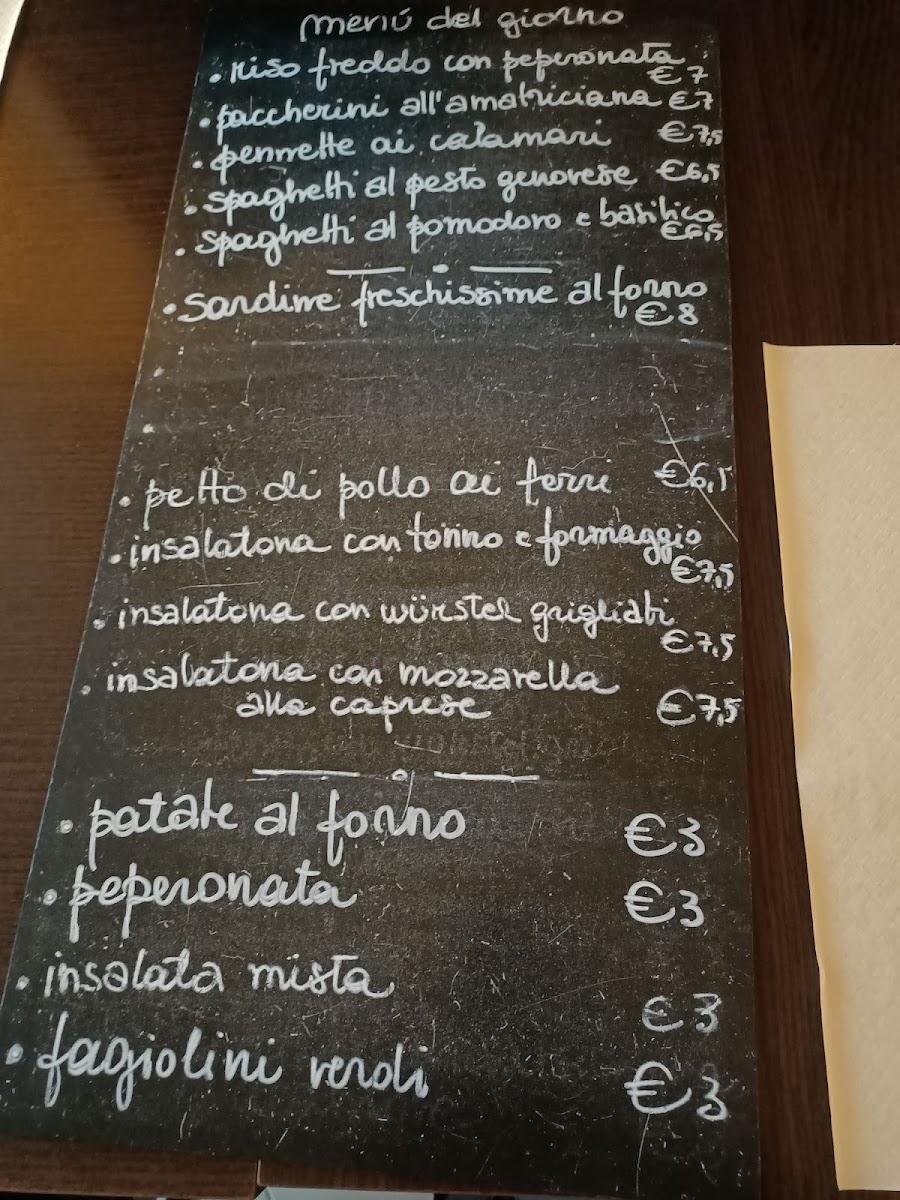 menú del giorno
• riso freddo con peperonata
€ 7
• paccherini all'amatriciana €7
• pennette ai calamari €7,5
• spaghetti al pesto genovese €6,5
• spaghetti al pomodoro e basilico
€6,5
• sardine freschissime al forno
€ 8
• petto di pollo ai ferri €6,5
• insalatona con tonno e formaggio
€7,5
• insalatona con würstel grigliati
€7,5
• insalatona con mozzarella
alla caprese €7,5
• patate al forno €3
• peperonata €3
• insalata mista
€3
• fagiolini verdi €3